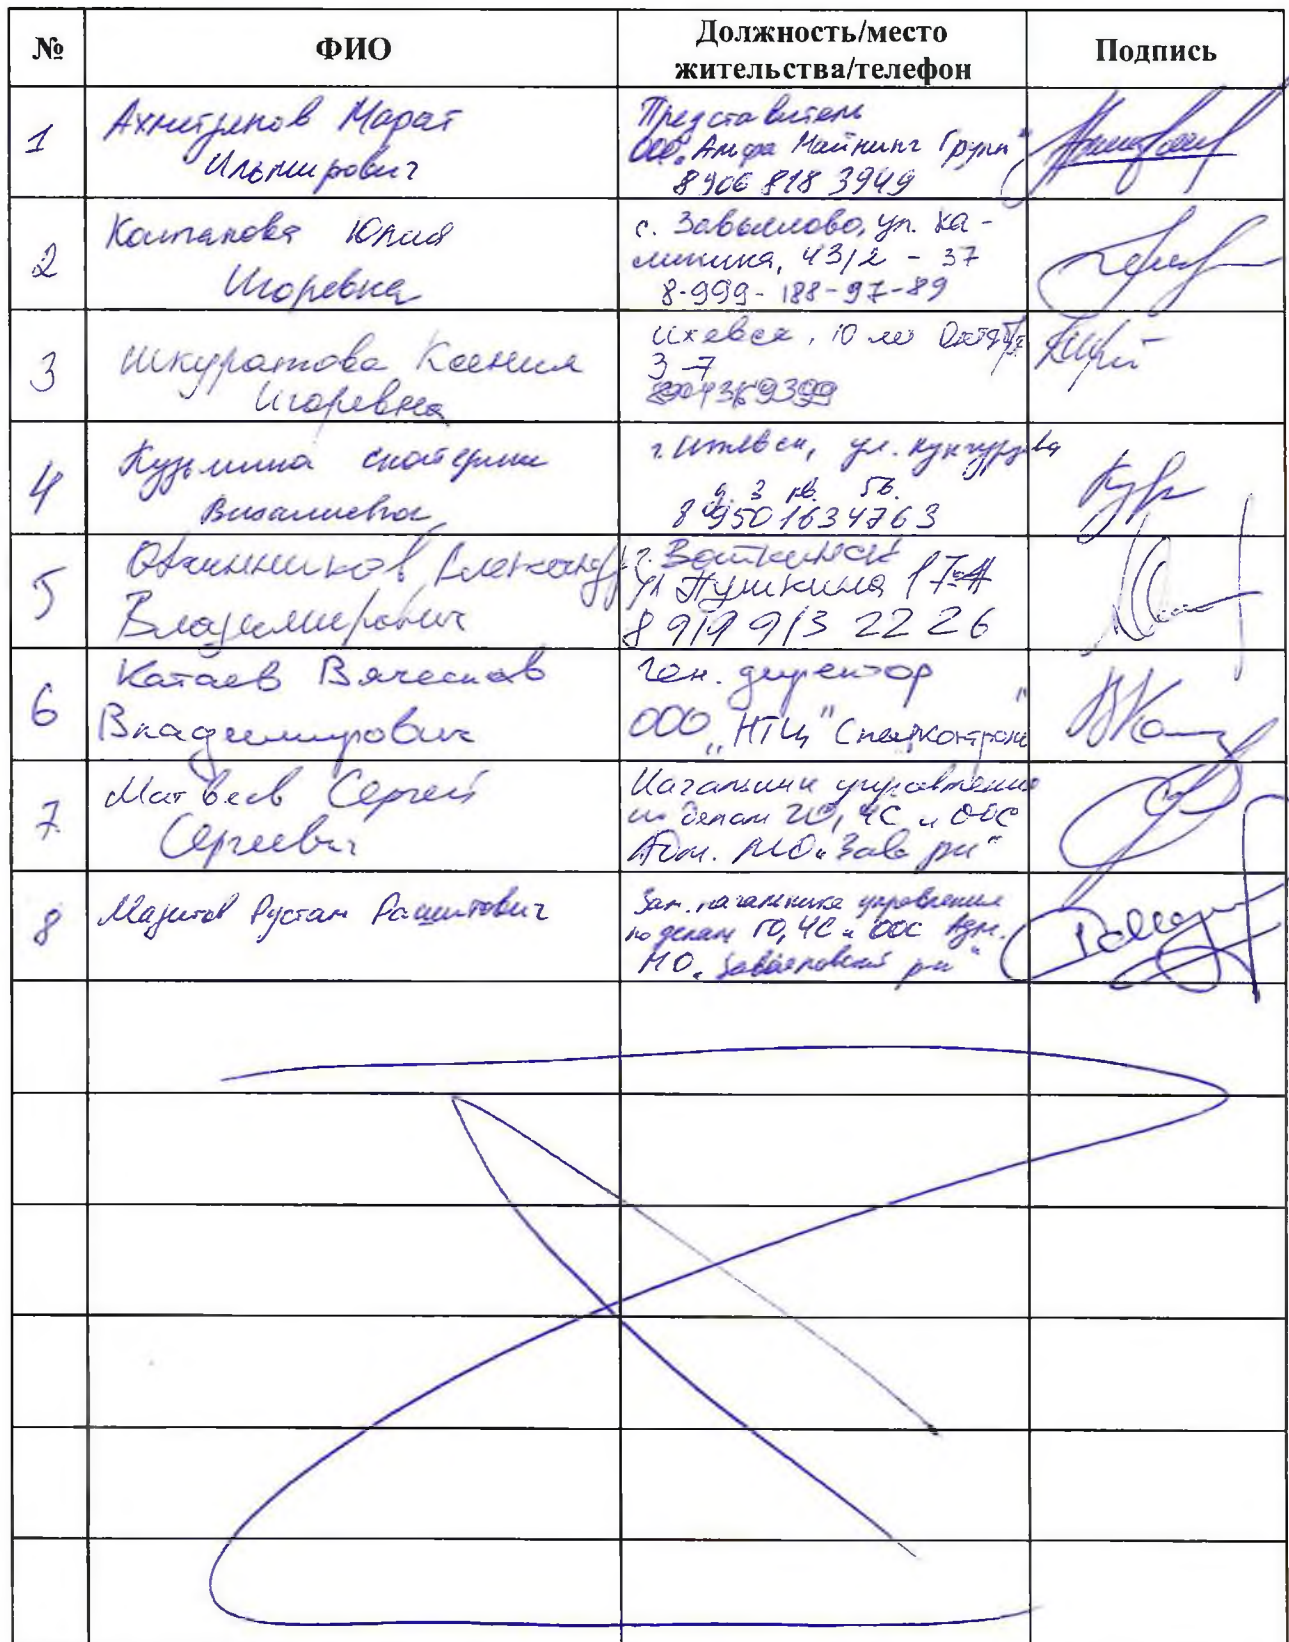 № ФИО Должность/место жительства/телефон Подпись
1 Ахметзянов Марат
Ильмирович
Представитель
ООО „Альфа Майнинг Групп"
8 906 818 3949
2 Колпакова Юлия
Игоревна
с. Завьялово, ул. Ка-
линина, 43/2 - 37
8-999-188-97-89
3 Шкуратова Ксения
Игоревна
Ижевск, 10 лет Октября
3-7
4 Кузьмина Екатерина
Витальевна
г. Ижевск, ул.
д. 3 кв. 56.
8 9501634763
5 Овчинников Александр
Владимирович
г. Воткинск
ул Пушкина
8 919 913 22 26
6 Катаев Вячеслав
Владимирович
Ген. директор
ООО „НТЦ "Спецконтроль"
7 Матвеев Сергей
Сергеевич
Начальник управления
по делам ГО, ЧС и ООС
Адм. МО „Зав. рн"
8 Мазитов Рустам Рашитович
Зам. начальника управления
по делам ГО, ЧС и ООС Адм.
МО „Завьяловский рн"